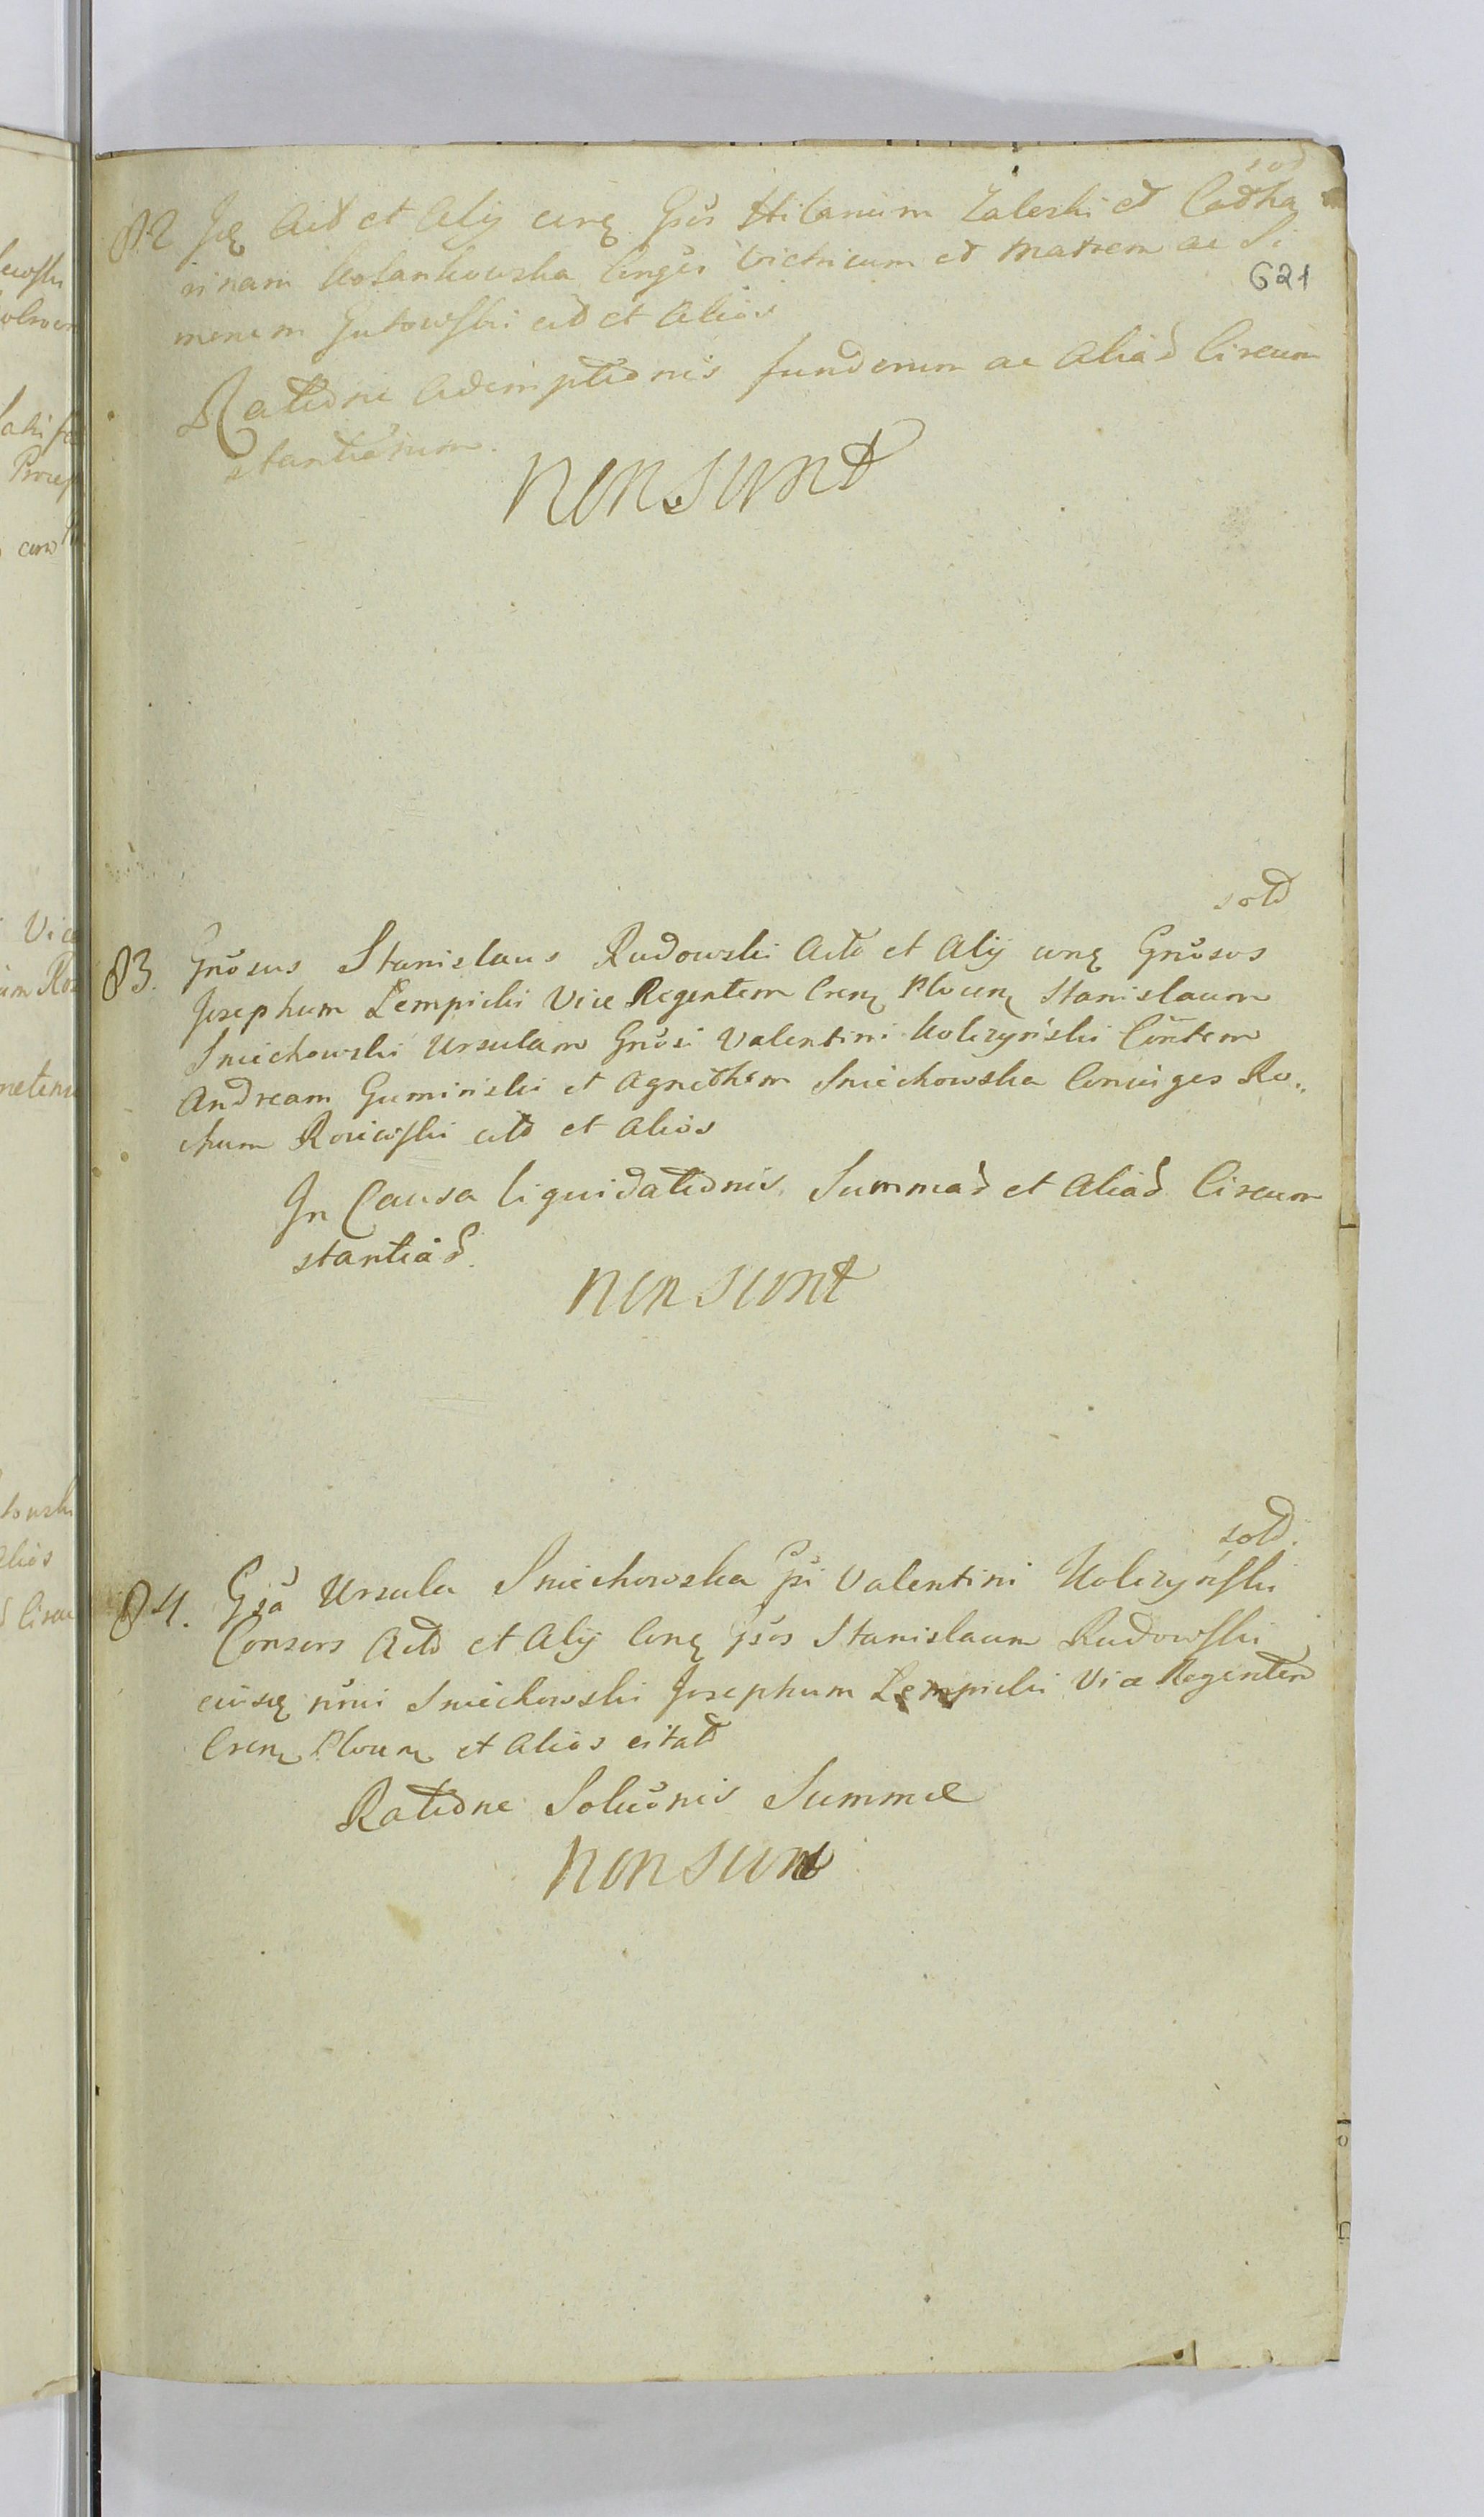 sod
82 Ję Acto et Alij cunę Gsos Hilarium Zaleski et Catha
rinam Kolankowska Conges Victricum et Matrem ac Si
621
monem Gutowski cit et Alios
Ratione Ademptionis fundorum ac Aliad Circum
stantiarum.
non sunt
sold
83. Gnosus Stanislaus Rudowski Acto et Alij cunę Gnosos
Josephum Lempicki Vice Regentem Cren Plocen Stanislaum
Sniechowski Ursulam Gnosi Valentini Kolczyński Contem
Andream Guminski et Agnethem Sniechowska Coniuges Ro„
chum Roscieski cito et Alios
In Causa liquidationis Summad et Aliad Circum
stantiad.
non sunt
sold.
84. Gsa Ursula Sniechowska Gsi Valentini Kolczyński
Consors Acto et Alij Conę Gsos Stanislaum Rudowski
eiusę nmi Sniechowski Josephum Lempicki Vice Regentem
Cren Plocen et Alios citatd
Ratione Soluonis Summæ
non sunt